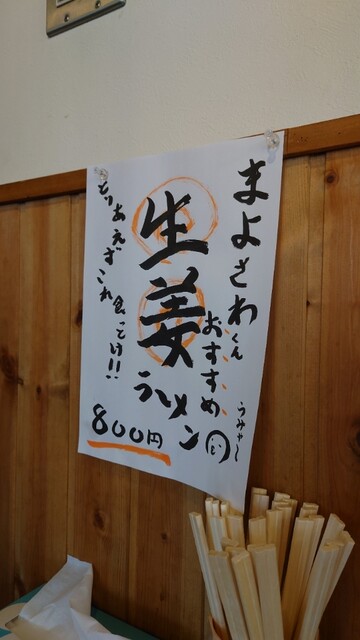 まよさわくん
おすすめ
うみゃ〜
生姜
ラーメン
800円
とりあえず
これ食っとけ!!